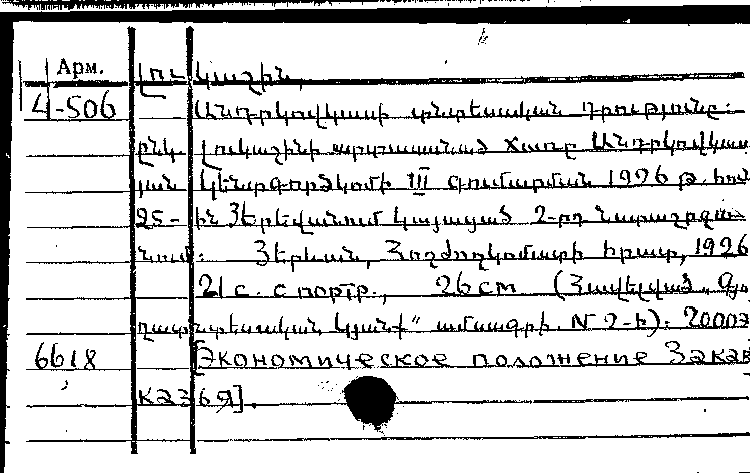 Арм. Լուկաշին,
4-506 Անդրկովկասի տնտեսական դրությունը:
ընկ. Լուկաշինի արտասանած ճառը Անդրկովկաս
յան Կենտգործկոմի III գումարման 1926 թ. հով
25-ին Յերեվանում կայացած 2-րդ նստաշրջա
նում: Յերևան, Հողժողկոմատի հրատ., 1926
21 с. с портр., 26 см (Հավելված "Գյու
ղատնտեսական կյանք" ամսագրի N 2-ի): 2000 э
6618 [Экономическое положение Закав
казья].